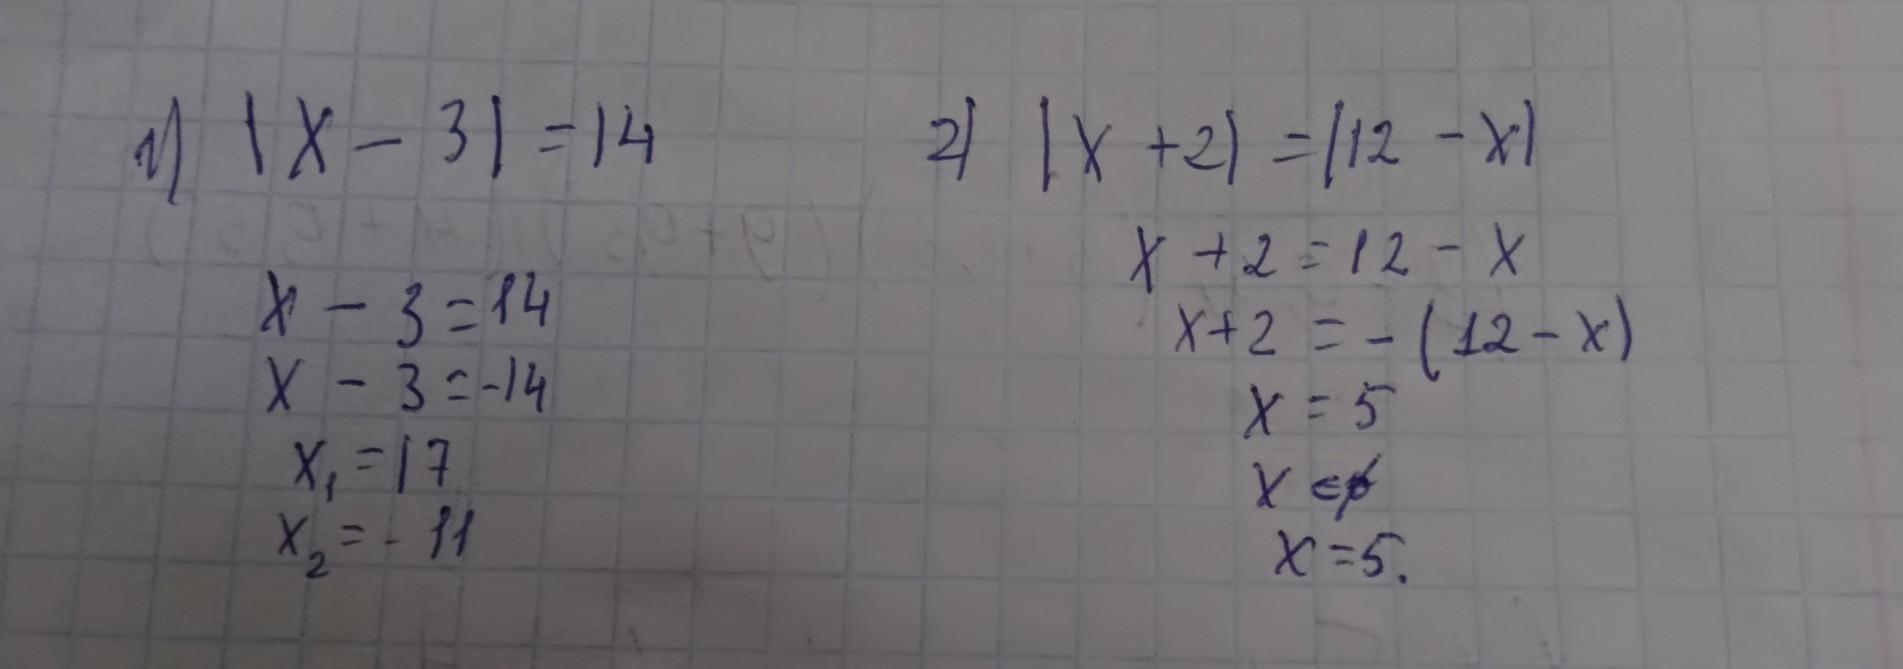 1) |x - 3| = 14
x - 3 = 14
x - 3 = -14
x₁ = 17
x₂ = - 11
2) |x + 2| = |12 - x|
x + 2 = 12 - x
x + 2 = - (12 - x)
x = 5
x ∈ ∅
x = 5.